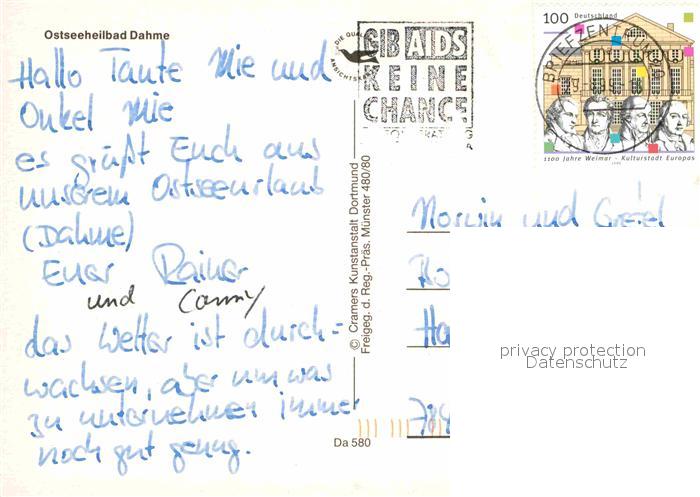 Ostseeheilbad Dahme
Hallo Tante Mie und
Onkel Mie
es grüßt Euch aus
unserem Ostseeurlaub
(Dahme)
Euer Rainer
und Conny
das Wetter ist durch-
wachsen, aber um was
zu unternehmen immer
noch gut genug.
DIE QUAL
ANSICHTSKA
GIB AIDS
KEINE
CHANCE
100 Deutschland
BRIEFZENTRUM
1100 Jahre Weimar - Kulturstadt Europas
© Cramers Kunstanstalt Dortmund
Freigeg. d. Reg.-Präs. Münster 480/80
und
Ho
Ha
784
privacy protection
Datenschutz
Da 580